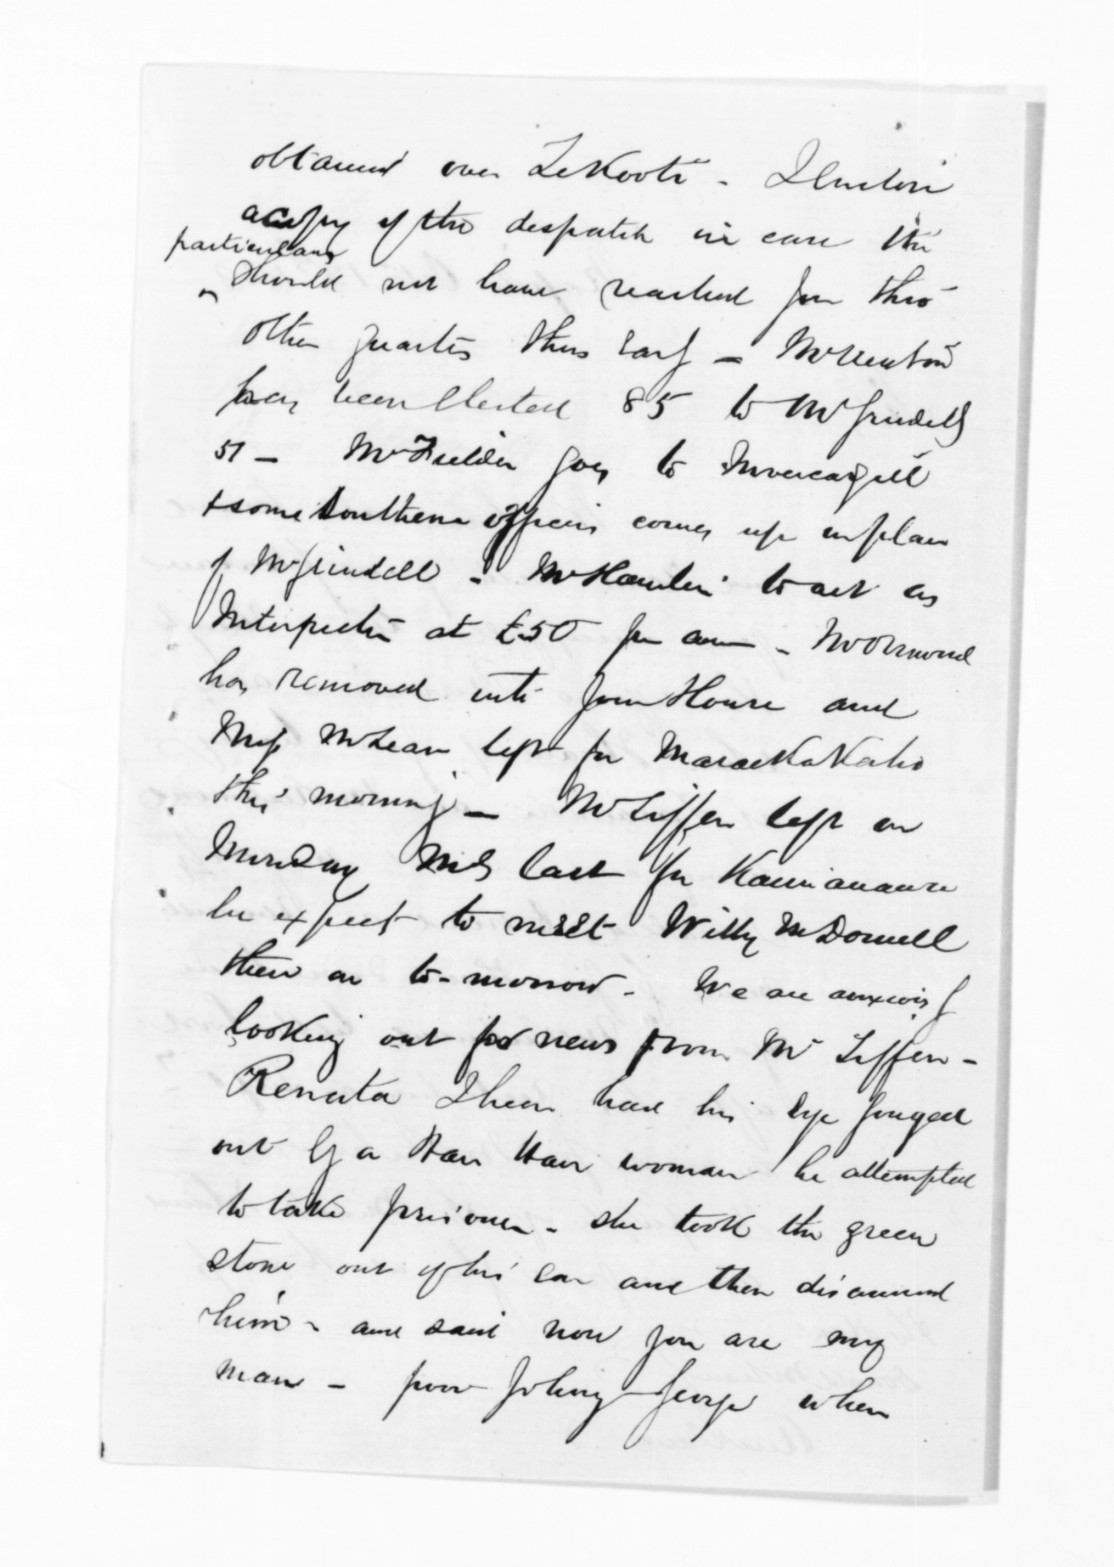 obtained over Te Kooti - I enclose
a copy of the despatch in case the
particulars
should not have reached you thro
other quarters thus early - Mr Newton
has been elected 85 to Mr Grindell
51 - Mr Fielder goes to Invercargill
& some Southern officer comes up in place
of Mr Grindell - Mr Hamlin to act as
Interpreter at £50 per ann - Mr Ormond
has removed into your House and
Miss McLean left for Maraekakaho
this morning - Mr Tiffen left on
Monday last for Kawianawa
he expect to meet Willy McDonnell
there on to-morrow - We are anxiously
looking out for news from Mr Tiffen -
Renata I hear had his eye gouged
out by a Hau Hau woman he attempted
to take prisoner - she took the green
stone out of his ear and then disarmed
him - and said now you are my
man - poor Johnny George when